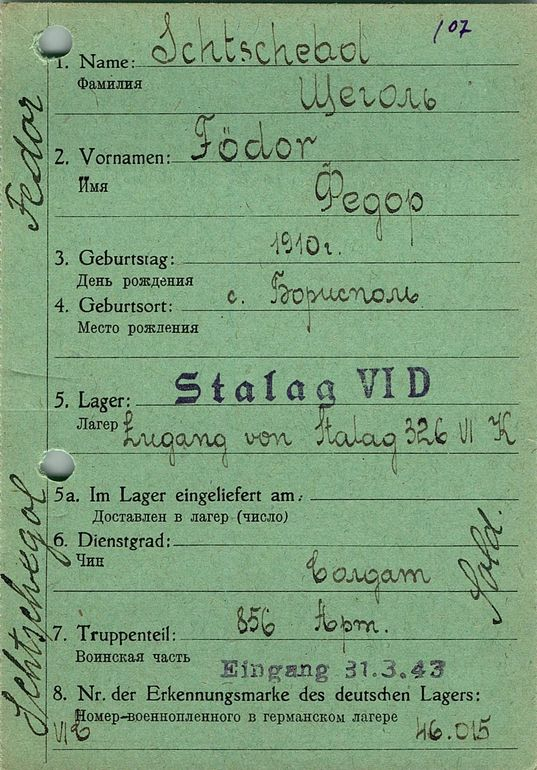 107
1. Name: Schtschebol
Фамилия
Щеголь
2. Vornamen: Födor
Имя
Федор
3. Geburtstag: 1910 г.
День рождения
4. Geburtsort: с. Борисполь
Место рождения
5. Lager: Stalag VI D
Лагер Zugang von Stalag 326 VI K
5a. Im Lager eingeliefert am:
Доставлен в лагер (число)
6. Dienstgrad:
Чин
Солдат
Sold.
7. Truppenteil: 856 Арт.
Воинская часть
Eingang 31.3.43
8. Nr. der Erkennungsmarke des deutschen Lagers:
Номер военнопленного в германском лагере
46.015
Schtschegol Fedor